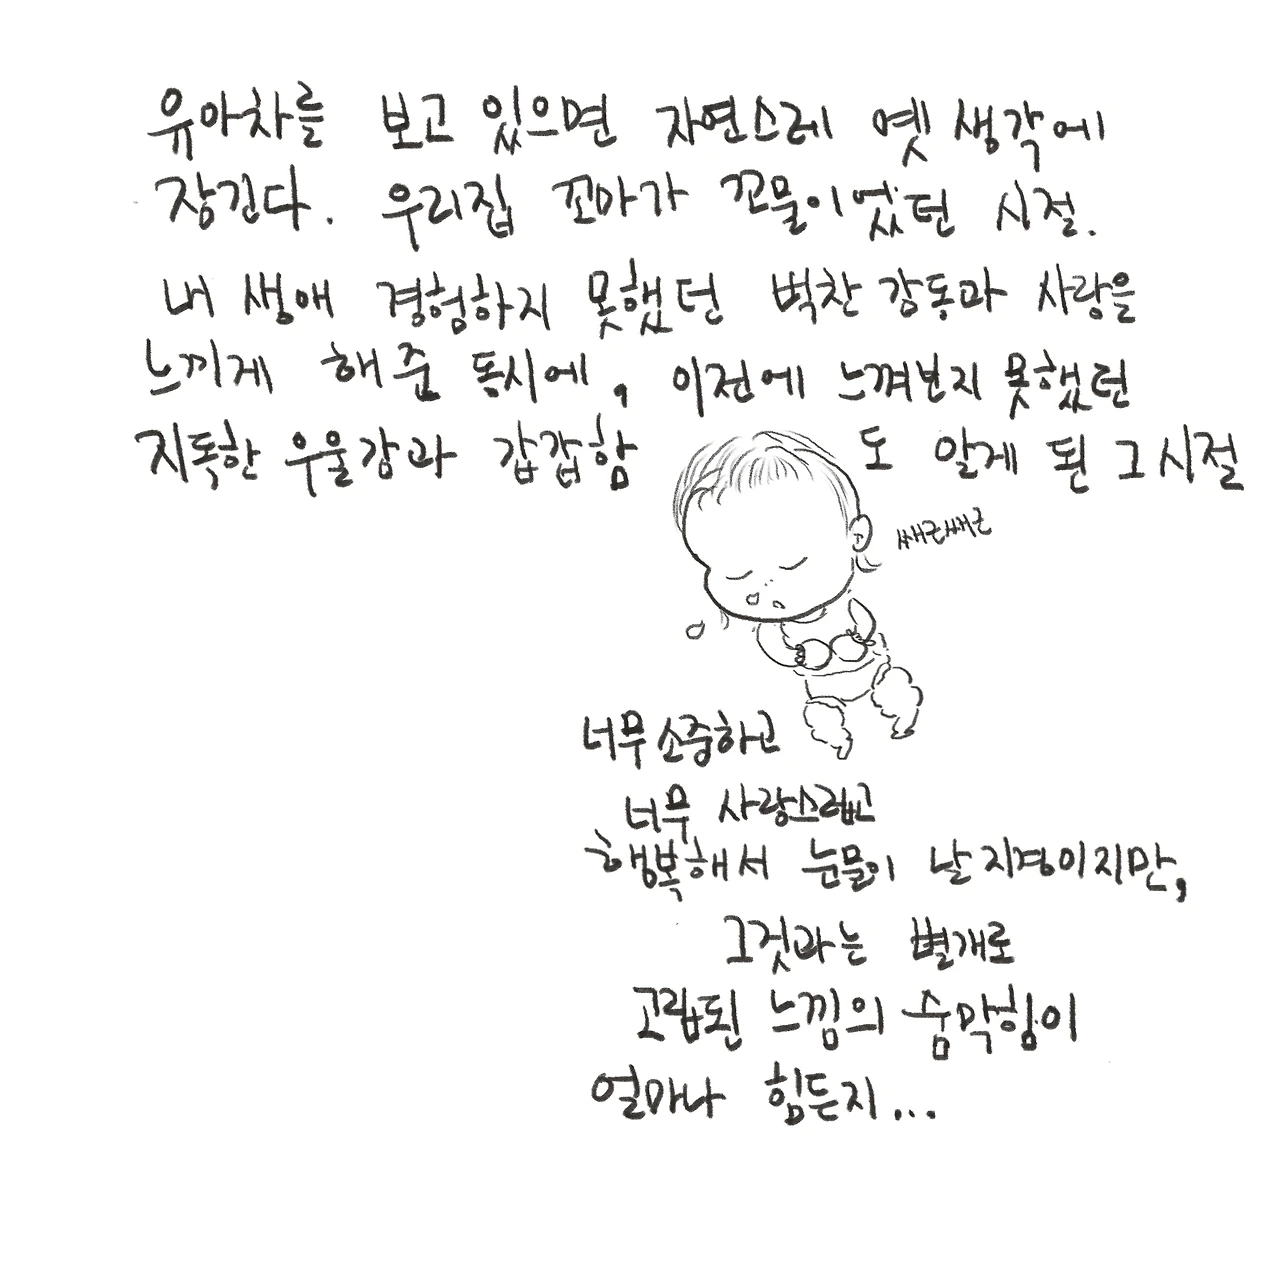 유아차를 보고 있으면 자연스레 옛 생각에
장긴다. 우리집 꼬마가 꼬물이었던 시절.
내 생애 경험하지 못했던 벅찬 감동과 사랑을
느끼게 해준 동시에, 이전에 느껴보지 못했던
지독한 우울감과 갑갑함도 알게 된 그 시절
쌔근쌔근
너무 소중하고
너무 사랑스럽고
행복해서 눈물이 날 지경이지만,
그것과는 별개로
고립된 느낌의 숨막힘이
얼마나 힘든지...